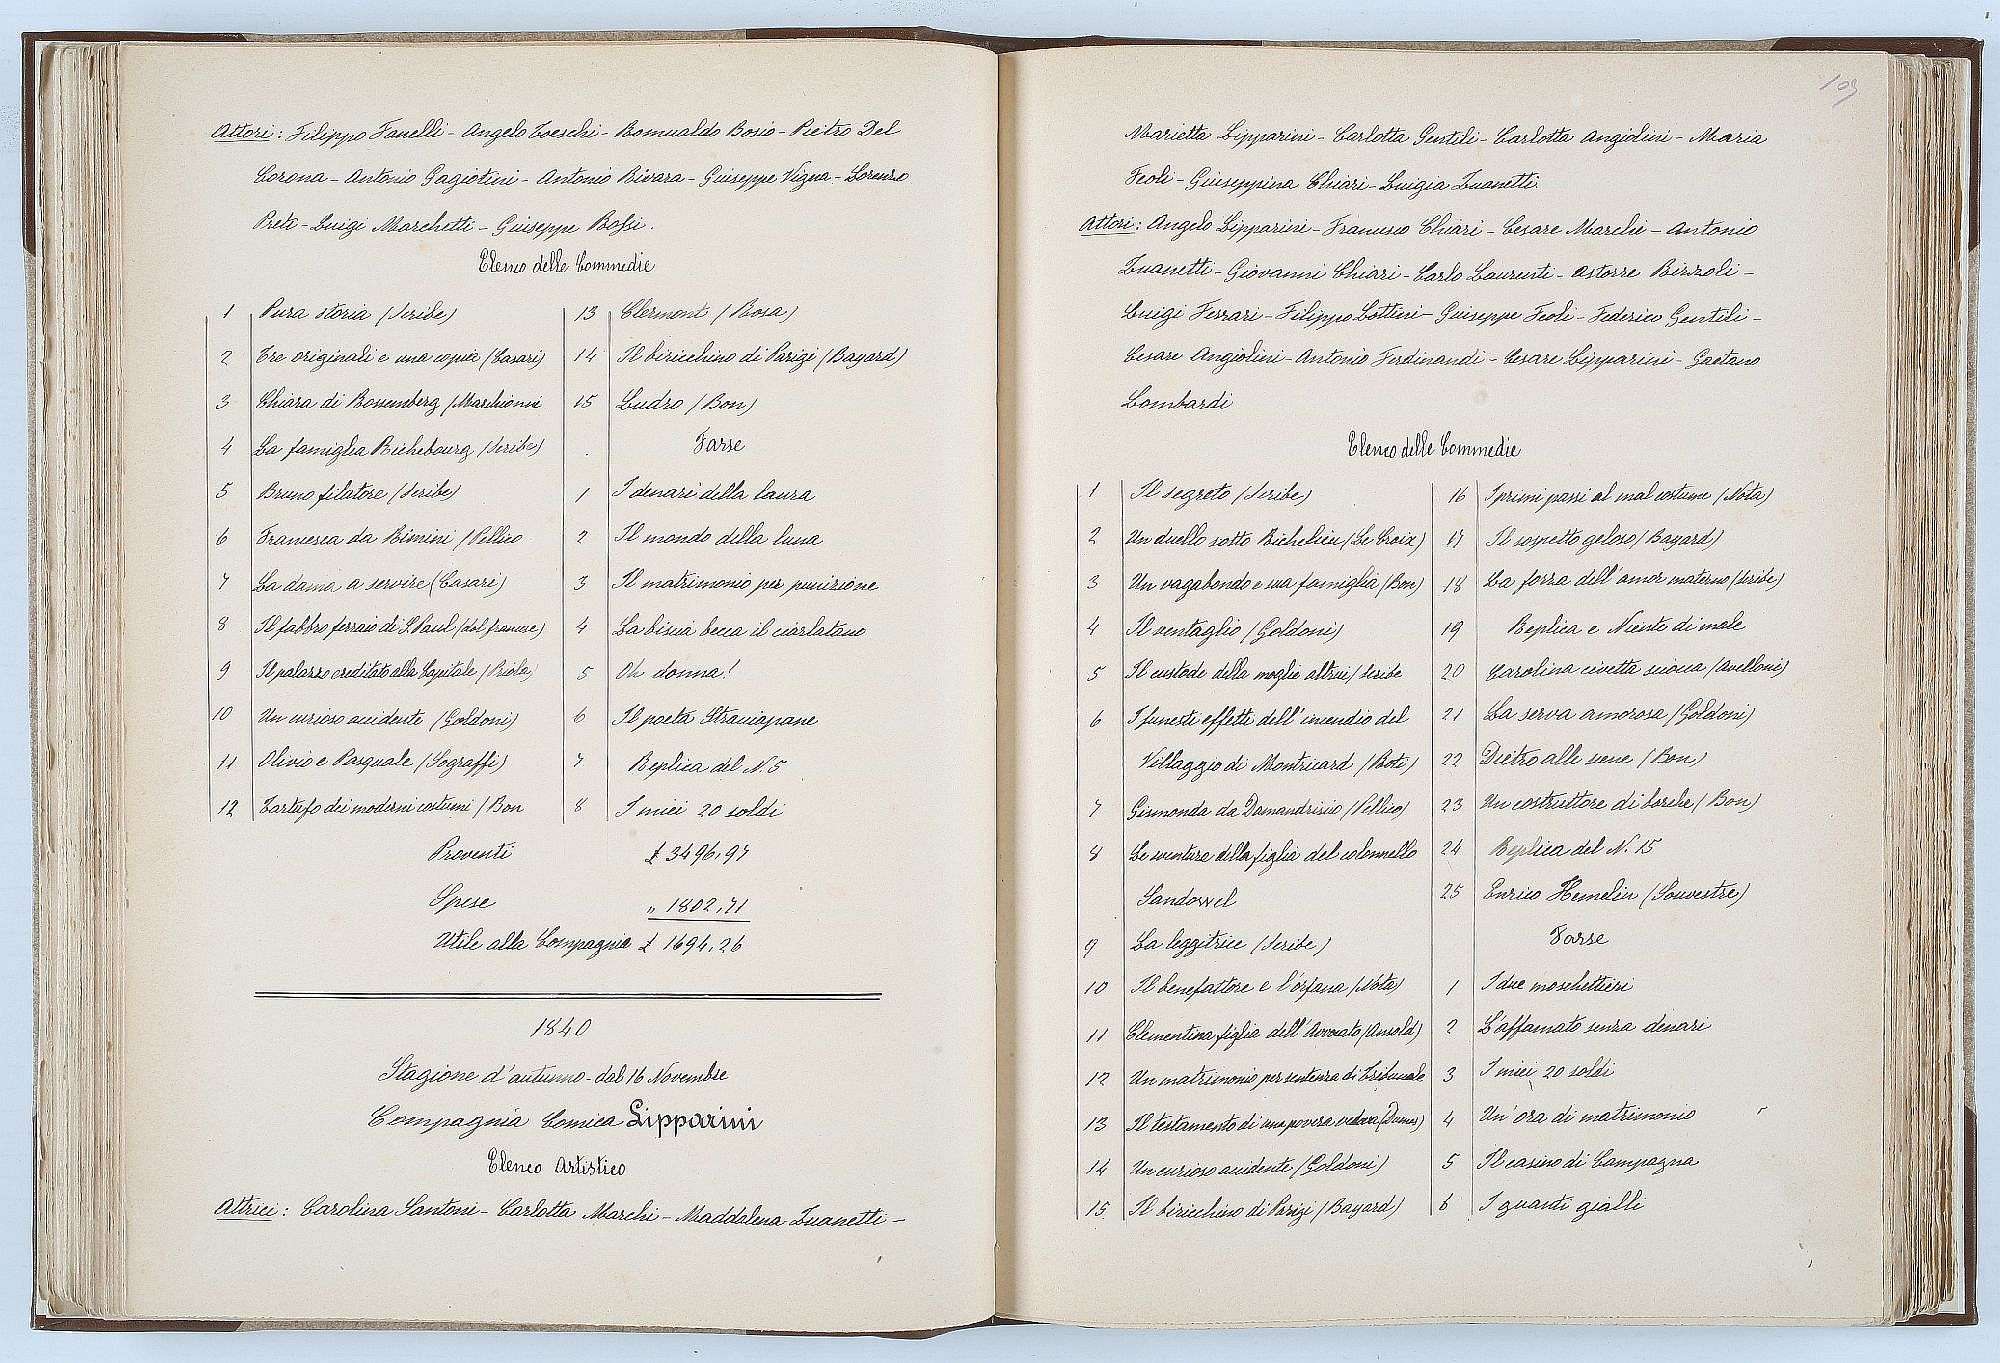 Attori: Filippo Fanelli - Angelo Toeschi - Romualdo Bosio - Pietro Del
Corona - Antonio Gagiotini - Antonio Rivara - Giuseppe Vigna - Lorenzo
Preti - Luigi Marchetti - Giuseppe Bossi.
Elenco delle Commedie
1 Pura storia (Scribe)
2 Tre originali e una copia (Casari)
3 Chiara di Rossemberg (Marchionni
4 La famiglia Richebourg (Scribe)
5 Bruno filatore (Scribe)
6 Francesca da Rimini (Pellico
7 La dama a servire (Casari)
8 Il fabbro ferraio di S. Paul (dal francese)
9 Il palazzo ereditato alla Capitale (Riola)
10 Un curioso accidente (Goldoni)
11 Olivio e Pasquale (Sograffi)
12 Tartufo dei moderni costumi (Bon
13 Clermont (Rosa)
14 Il biricchino di Parigi (Bayard)
15 Ludro (Bon)
Farse
1 I denari della laura
2 Il mondo della luna
3 Il matrimonio per punizione
4 La biscia becca il ciarlatano
5 Oh donna!
6 Il poeta Stracciapane
7 Replica del N. 5
8 I miei 20 soldi
Proventi £ 3496,97
Spese " 1802,71
Utile alla Compagnia £ 1694,26
1840
Stagione d'autunno - dal 16 Novembre
Compagnia Comica Lipparini
Elenco Artistico
Attrici: Carolina Santoni - Carlotta Marchi - Maddalena Zuanetti -
109
Marietta Lipparini - Carlotta Gentili - Carlotta Angiolini - Maria
Feoli - Giuseppina Chiari - Luigia Zuanetti.
Attori: Angelo Lipparini - Francesco Chiari - Cesare Marchi - Antonio
Zuanetti - Giovanni Chiari - Carlo Laurenti - Astorre Bizzoli -
Luigi Ferrari - Filippo Lottini - Guiseppe Feoli - Federico Gentili -
Cesare Angiolini - Antonio Ferdinandi - Cesare Lipparini - Gaetano
Lombardi
Elenco delle Commedie
1 Il segreto (Scribe)
2 Un duello sotto Richelieu (Le Croix)
3 Un vagabondo e sua famiglia (Bon)
4 Il ventaglio (Goldoni)
5 Il custode della moglie altrui (Scribe
6 I funesti effetti dell'incendio del
Villaggio di Montricard (Boti)
7 Gismonda da Damandrisio (Pellico)
8 Le sventure della figlia del colonnello
Sandowel
9 La leggitrice (Scribe)
10 Il benefattore e l'orfana (Nota)
11 Clementina figlia dell'Avvocato (Ansold)
12 Un matrimonio per sentenza di Tribunale
13 Il testamento di una povera vedova (Dumas)
14 Un curioso accidente (Goldoni)
15 Il biricchino di Parigi (Bayard)
16 I primi passi al mal costume (Nota)
17 Il sospetto geloso (Bayard)
18 La forza dell'amor materno (Scribe)
19 Replica e Niente di male
20 Carolina civetta sciocca (Avelloni)
21 La serva amorosa (Goldoni)
22 Dietro alle scene (Bon)
23 Un costruttore di barche (Bon)
24 Replica del N. 15
25 Enrico Hemelin (Souvestre)
Farse
1 I due moschettieri
2 L'affamato senza denari
3 I miei 20 soldi
4 Un'ora di matrimonio
5 Il casino di Campagna
6 I guanti gialli